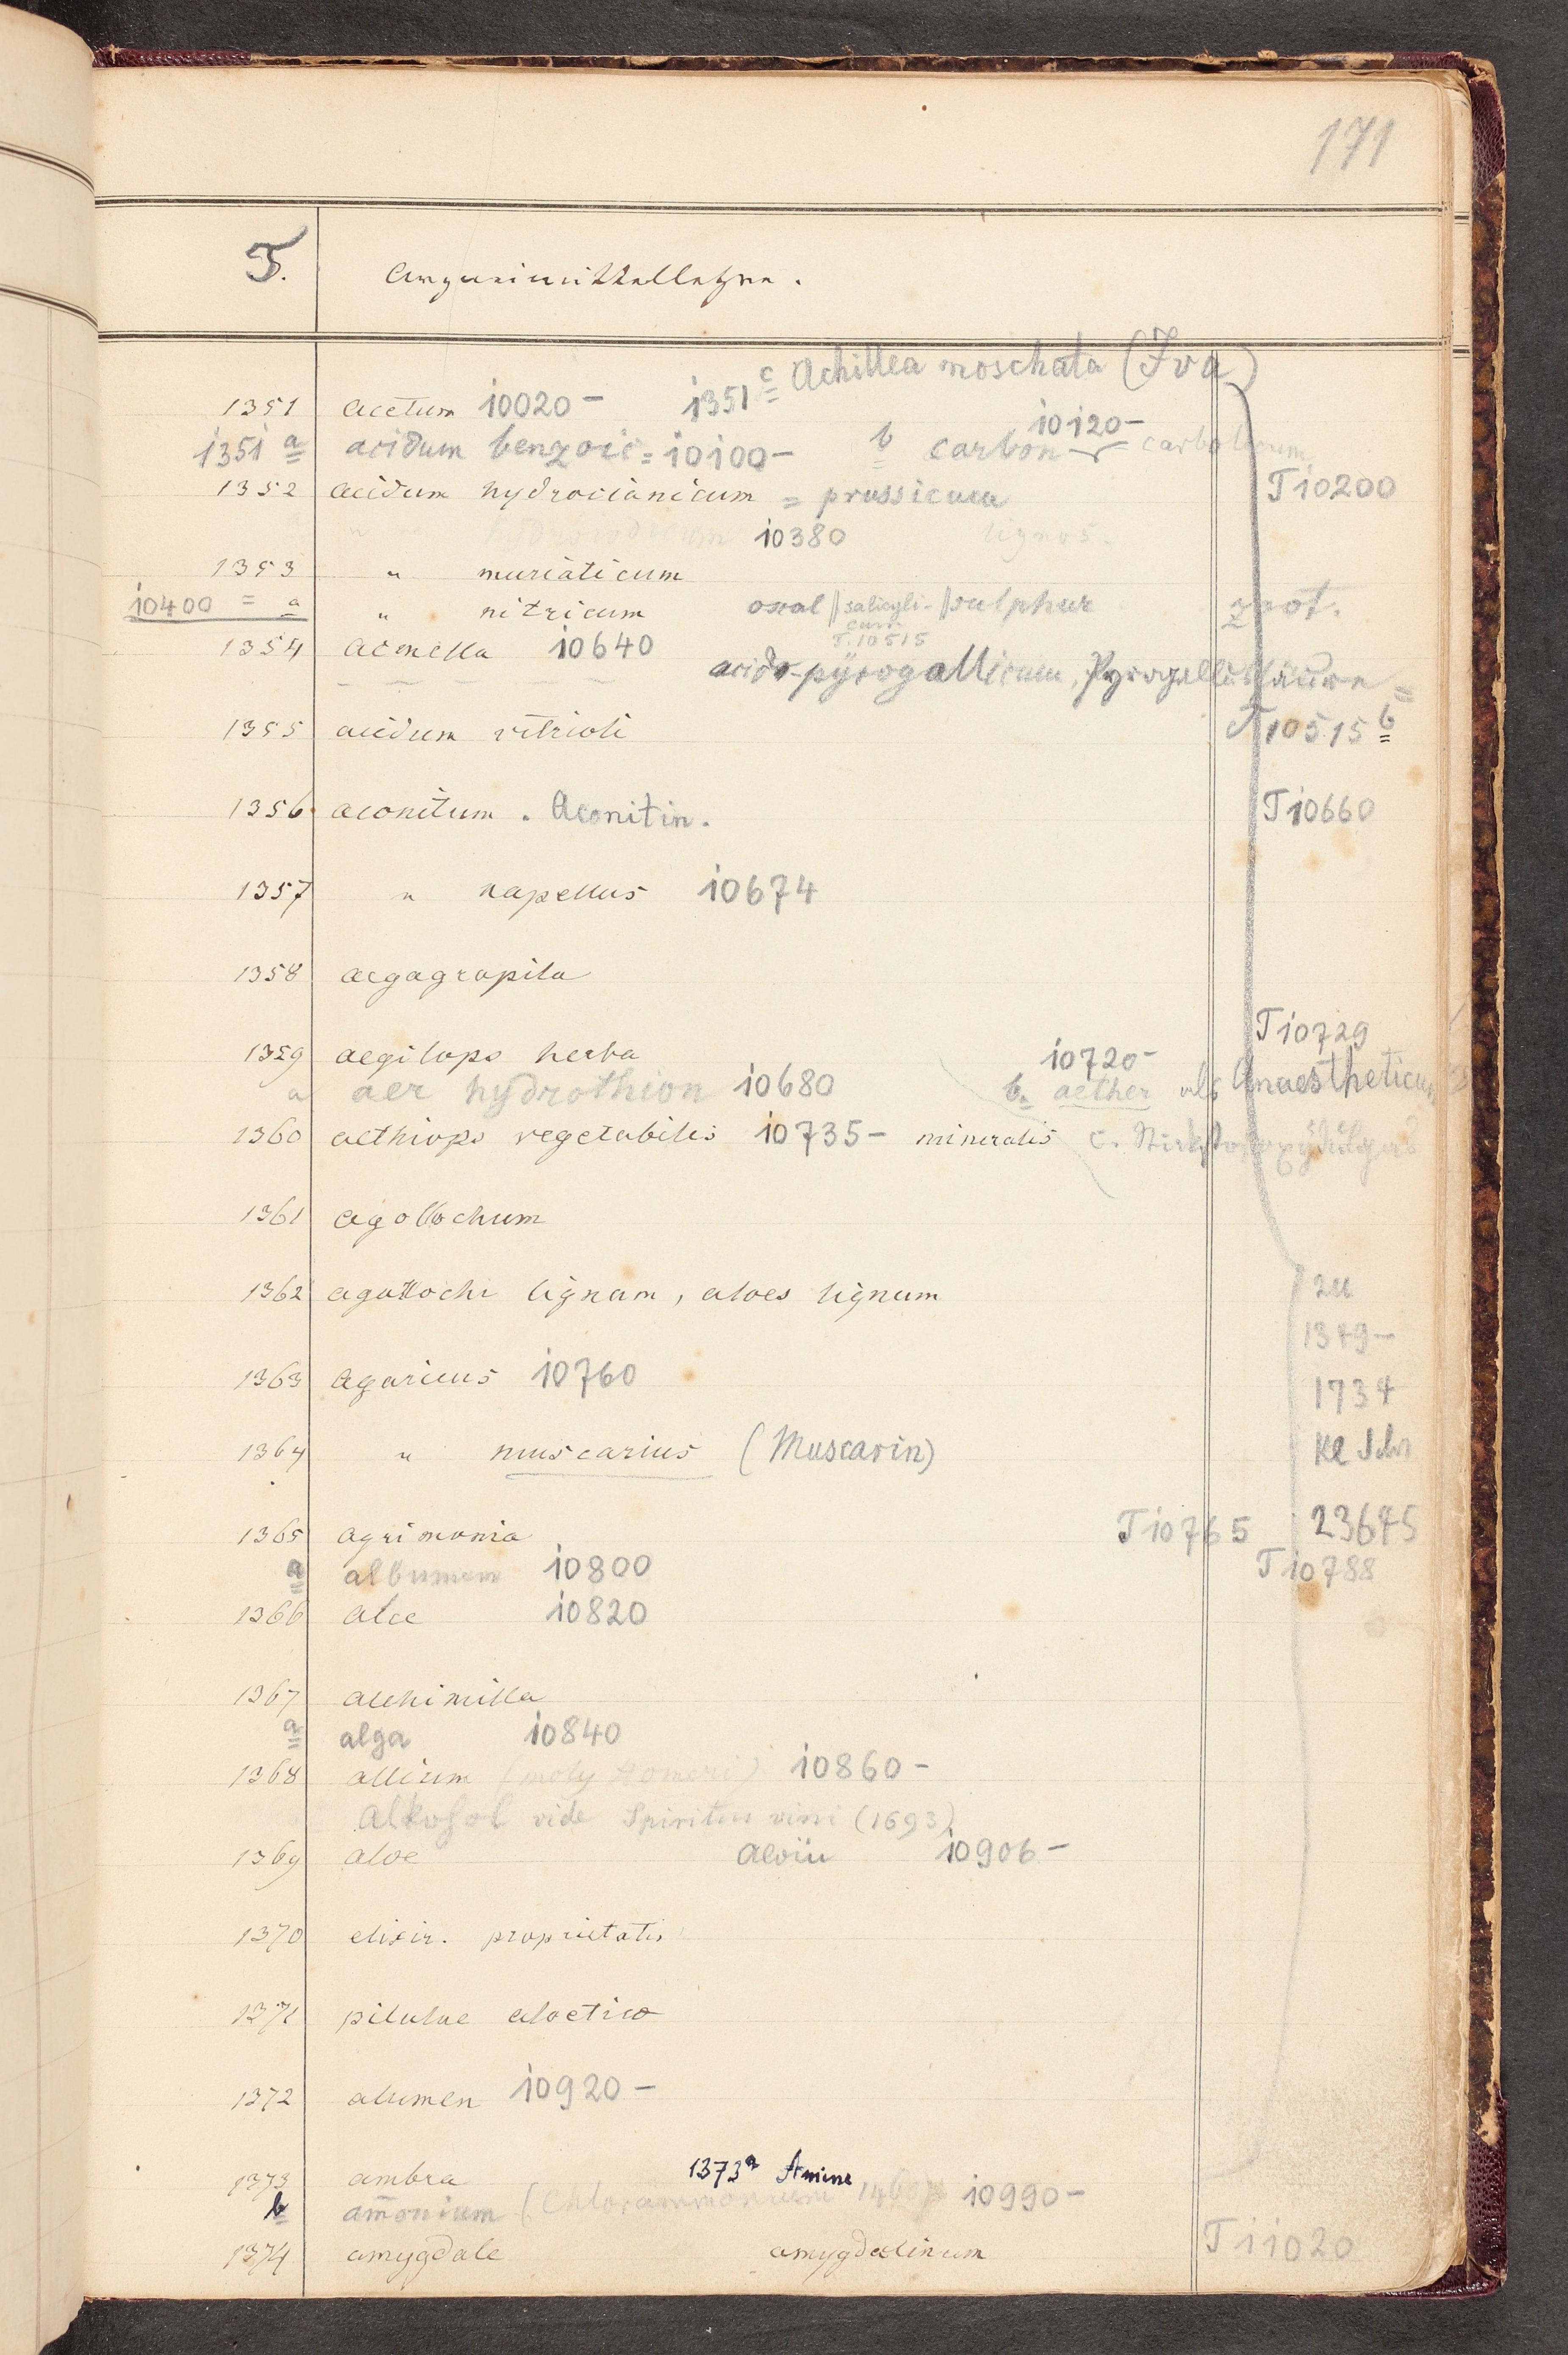 171
T. Arzneimittellehre.
1351c Achillea moschata (Iva)
1351 acetum 10020-
10120-
1351a acidum benzoic = 10100- b carbon = carbolicum
1352 acidum hydrocianicum = prussicum T 10200
" hydroiodicum 10380 lignos.
1353 " muriaticum
10400 = a " nitricum oxal // salicyli- // sulphur
cum
T. 10515
1354 acmella 10640
acid. pyrogallicum, Pyrogallussäure =
1355 acidum vitrioli T 10515b
1356 aconitum. Aconitin. T 10660
1357 " napellus 10674
1358 aegagropila
T 10729
1359 aegilops herba 10720-
a aer hydrothion 10680 b. aether als Anaestheticum
1360 aethiops vegetabilis 10735- mineralis c. Stickstoffoxydulgas
1361 agollochum
1362 agallochi lignum, aloes lignum
zu
1349-
1363 agaricus 10760
1734
1364 " muscarius (Muscarin)
1365 agrimonia T 10765 23675
a albumen 10800 T 10788
1366 alce 10820
1367 alchimilla
a alga 10840
1368 allium (moly Homeri) 10860-
Alkohol vide Spiritus vini (1693)
1369 aloe Aloïn 10906-
1370 elixir. proprietatis
1371 pilulae aloetico
1372 alumen 10920-
1373 ambra 1373a Amine
b am̅onium (Chlorammonium 10990-
1374 amygdale amygdalinum T 11020